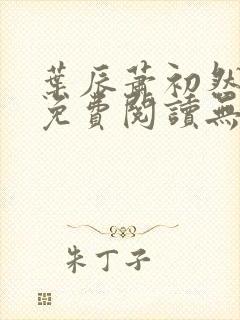 葉辰蕭初然
免費閱讀無
朱丁子